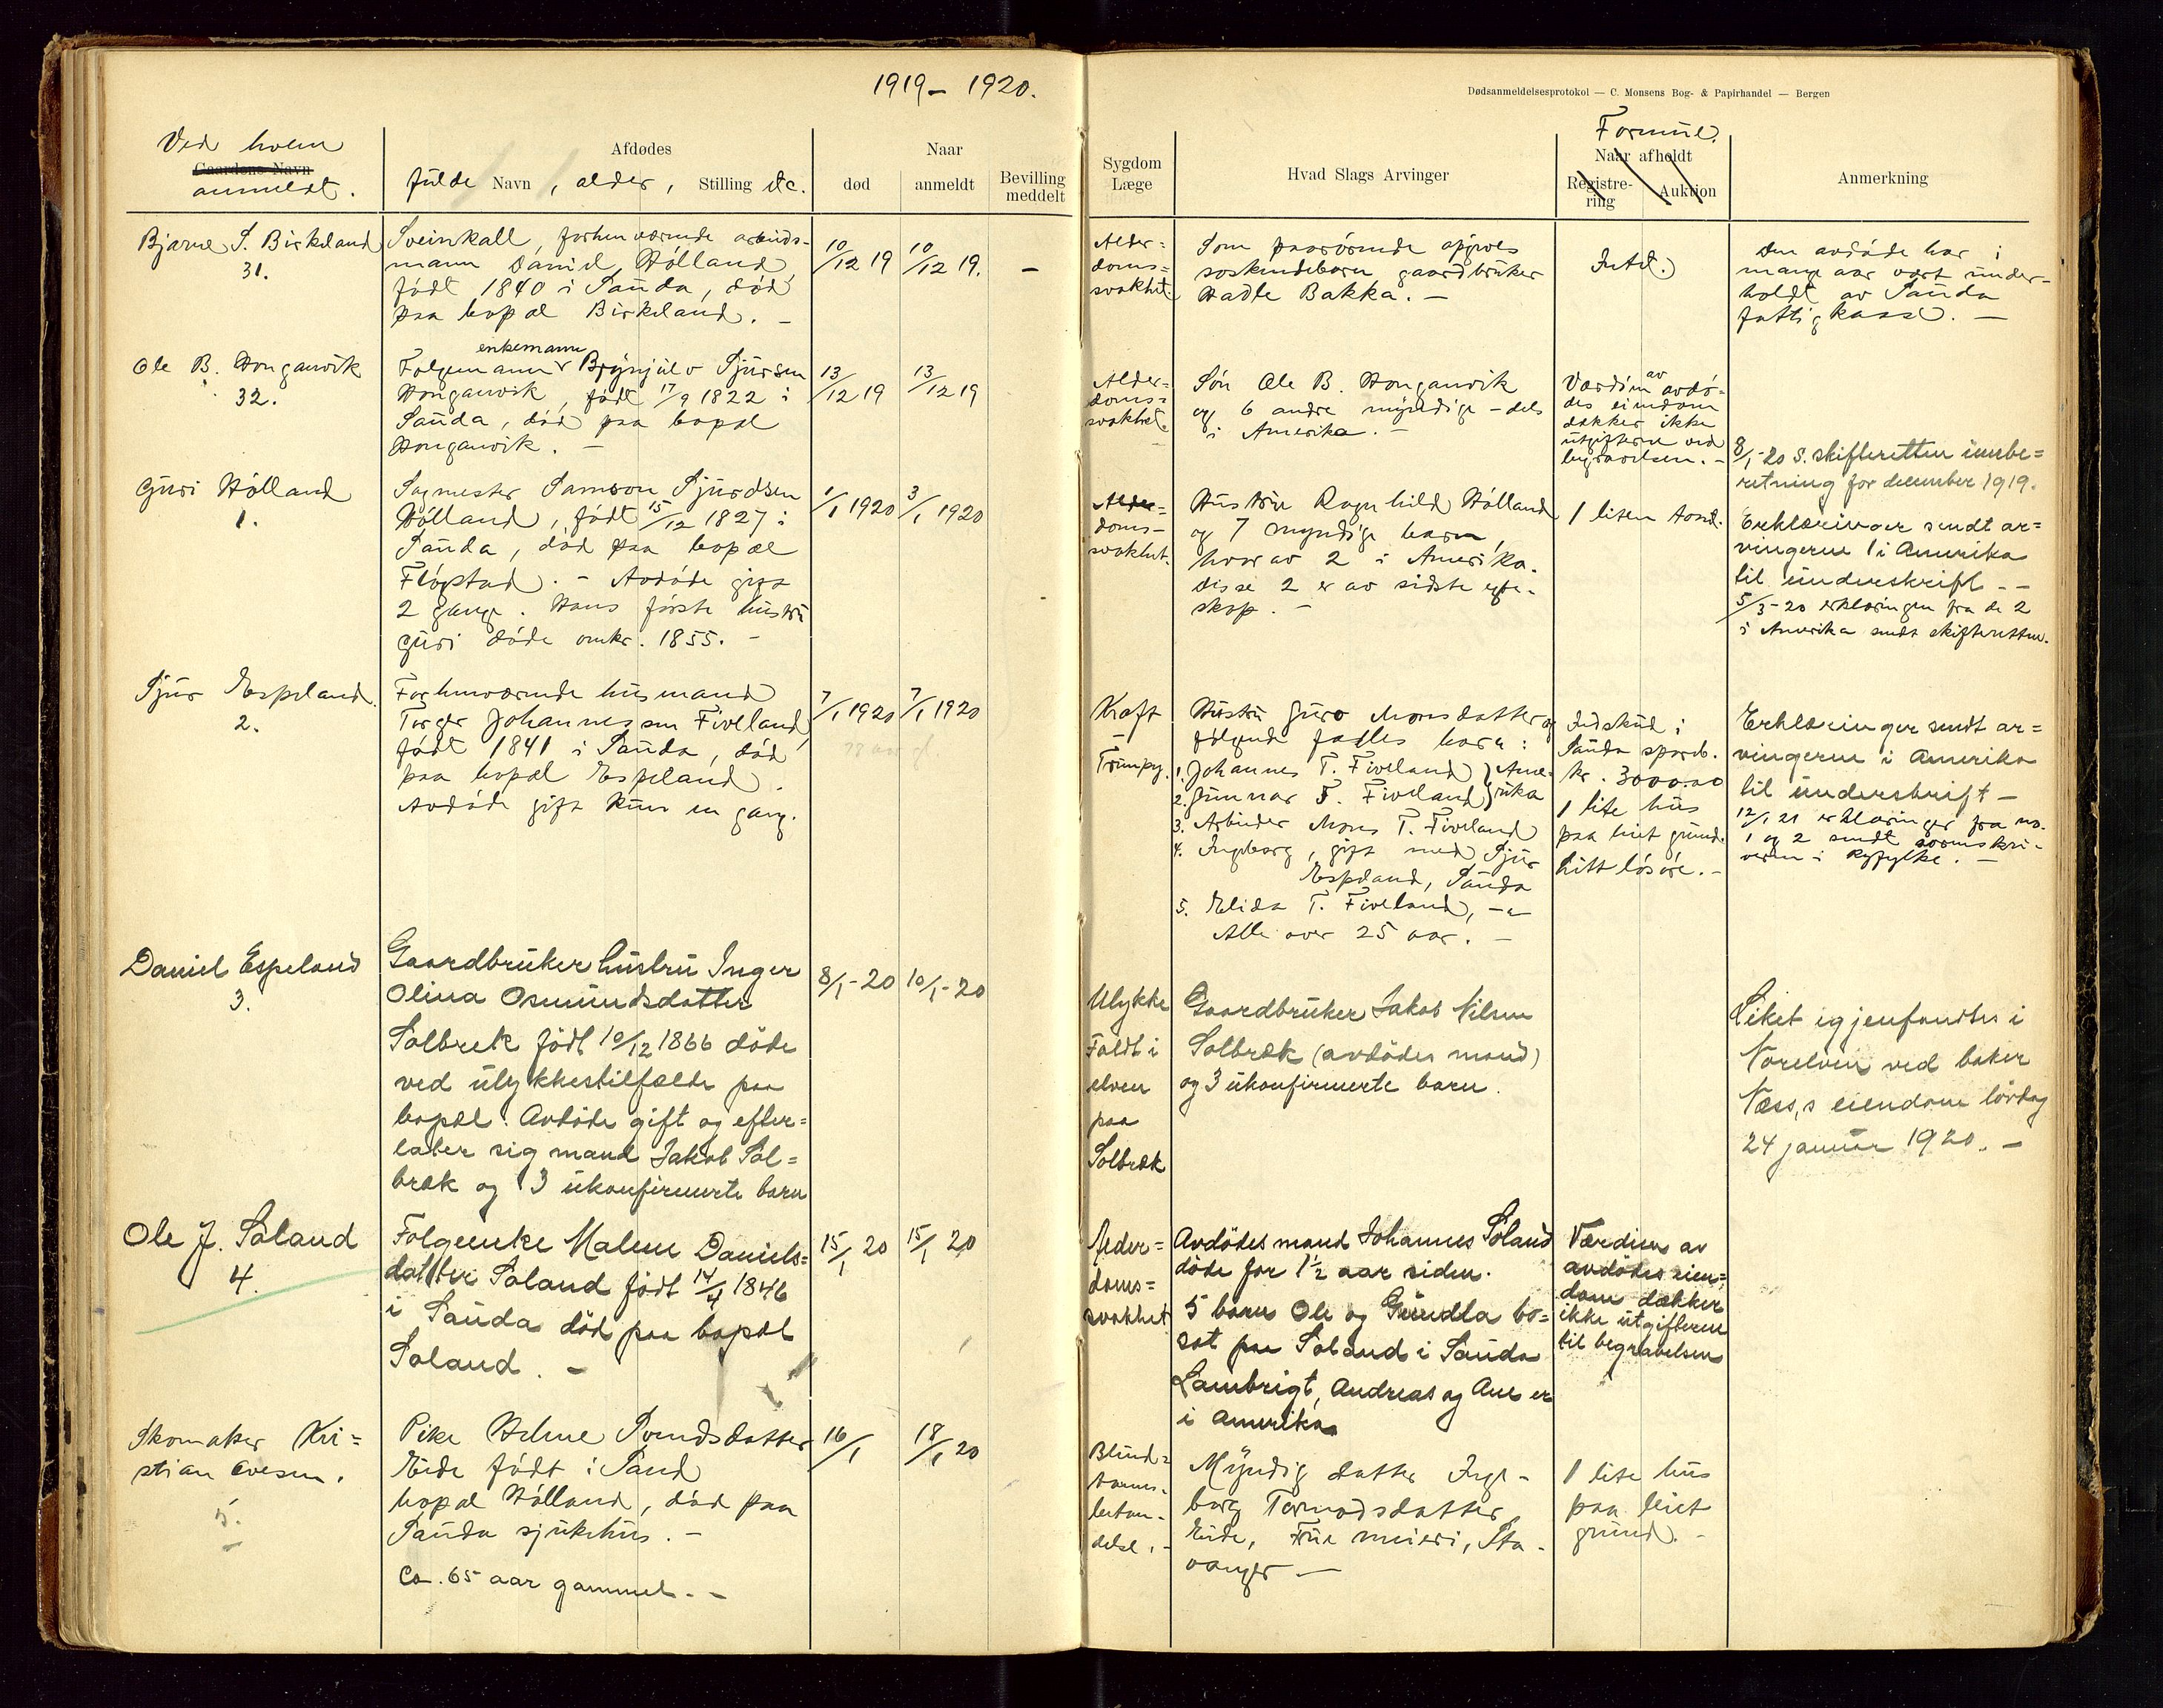 1919 – 1920.
Dødsanmeldelsesprotokol — C. Monsens Bog- & Papirhandel — Bergen
Ved hvem
Gaardens Navn
anmeldt.
Afdødes
fulde Navn, alder, Stilling etc.
Naar
død
anmeldt
Bevilling
meddelt
Sygdom
Læge
Hvad Slags Arvinger
Formue.
Naar afholdt
Registre-
ring
Auktion
Anmerkning
Bjarne S. Birkeland
31.
Sveinkall, forhenværende arbeids-
mann Daniel Hölland,
født 1840 i Sauda, død
paa bopæl Birkeland. –
10/12 19
10/12 19.
–
Alder-
doms-
svakhet.
Som paarörende opgives
söskendebarn gaardbruker
Hadle Bakka. –
Intet.
Den avdöde har i
mange aar vært under-
holdt av Sauda
fattigkasse. –
Ole B. Honganvik
32.
enkemann
Følgemann Brynjulv Sjursen
Honganvik, født 17/9 1822 i
Sauda, död paa bopæl
Honganvik. –
13/12 19
13/12 19
Alder-
doms-
svakhet.
Søn Ole B. Honganvik
og 6 andre myndige – dels
i Amerika. –
Værdien av avdö-
des eiendom
dækker ikke
utgifterne ved
begravelsen. –
8/1-20 s. skifteretten innbe=
retning for december 1919.
Guri Hölland
1.
Sagmester Samson Sjurdsen
Hölland, født 15/12 1827 i
Sauda, død paa bopæl
Fløgstad. – Avdöde gift
2 gange. Hans første hustru
Guri døde omkr. 1855. –
1/1 1920
3/1 1920
Alder-
doms-
svakhet.
Hustru Ragnhild Hölland
og 7 myndige barn,
hvorav 2 i Amerika.
Disse 2 er av sidste egte-
skap. –
1 liten
Erklæringer sendt ar=
vingerne i Amerika
til underskrift – –
5/3-20 erklæringen fra de 2
i Amerika sendt skifteretten.
Sjur Espeland.
2.
Forhenværende husmand
Torger Johannessen Fiveland,
født 1841 i Sauda, død
paa bopæl Espeland.
Avdöde gift kun en gang.
7/1 1920
7/1 1920
78 aar gl.
Kræft
–
Trumpy.
Hustru Guro Monsdatter og
følgende fælles barn:
1. Johannes T. Fiveland } Ame-
2. Gunnar T. Fiveland } rika
3. Arbeider Mons T. Fiveland
4. Ingeborg, gift med Sjur
Espeland, Sauda
5. Elida T. Fiveland, –"–
Alle over 25 aar. –
Indskud i
Sauda spareb.
kr. 3000.00
1 lite hus
paa leiet grund.
Litt løsøre. –
Erklæringer sendt ar=
vingerne i Amerika
til underskrift –
12/1 21 erklæringer fra no.
1 og 2 sendt sorenskri-
veren i Ryfylke. –
Daniel Espeland
3.
Gaardbruker hustru Inger
Olina Osmundsdatter
Solbrek født 10/12 1866 døde
ved ulykkestilfælde paa
bopæl. Avdöde gift og efter=
later sig mand Jakob Sol=
bræk og 3 ukonfirmerte barn
8/1-20
10/1-20
Ulykke
Faldt i
elven
paa
Solbræk
Gaardbruker Jakob Nilsen
Solbræk (avdödes mand)
og 3 ukonfirmerte barn.
Liket igjenfandtes i
Norelven ved baker
Næss,s eiendom lördag
24 januar 1920. –
Ole J. Søland
4.
Følgeenke Malene Daniels=
datter Soland født 14/4 1846
i Sauda død paa bopæl
Soland. –
15/1 20
15/1 20
Alder=
doms=
svakhet
Avdödes mand Johannes Søland
døde for 1½ aar siden.
5 barn Ole og Gundla bo=
sat paa Soland i Sauda
Lambrigt, Andreas og Ane er
i Amerika
Værdien av
avdödes eien=
dom dækker
ikke utgifterne
til begravelsen
Skomaker Kri=
stian Evesen.
5.
Pike Helene Svendsdatter
Eide født i Sand
bopæl Hölland, død paa
Sauda sjukehus. –
Ca. 65 aar gammel. –
16/1
18/1 20
Blind=
tarms-
betæn-
delse. –
Myndig datter Inge-
borg Tormodsdatter
Eide, Frue meieri, Sta-
vanger –
1 lite hus
paa leiet
grund. –